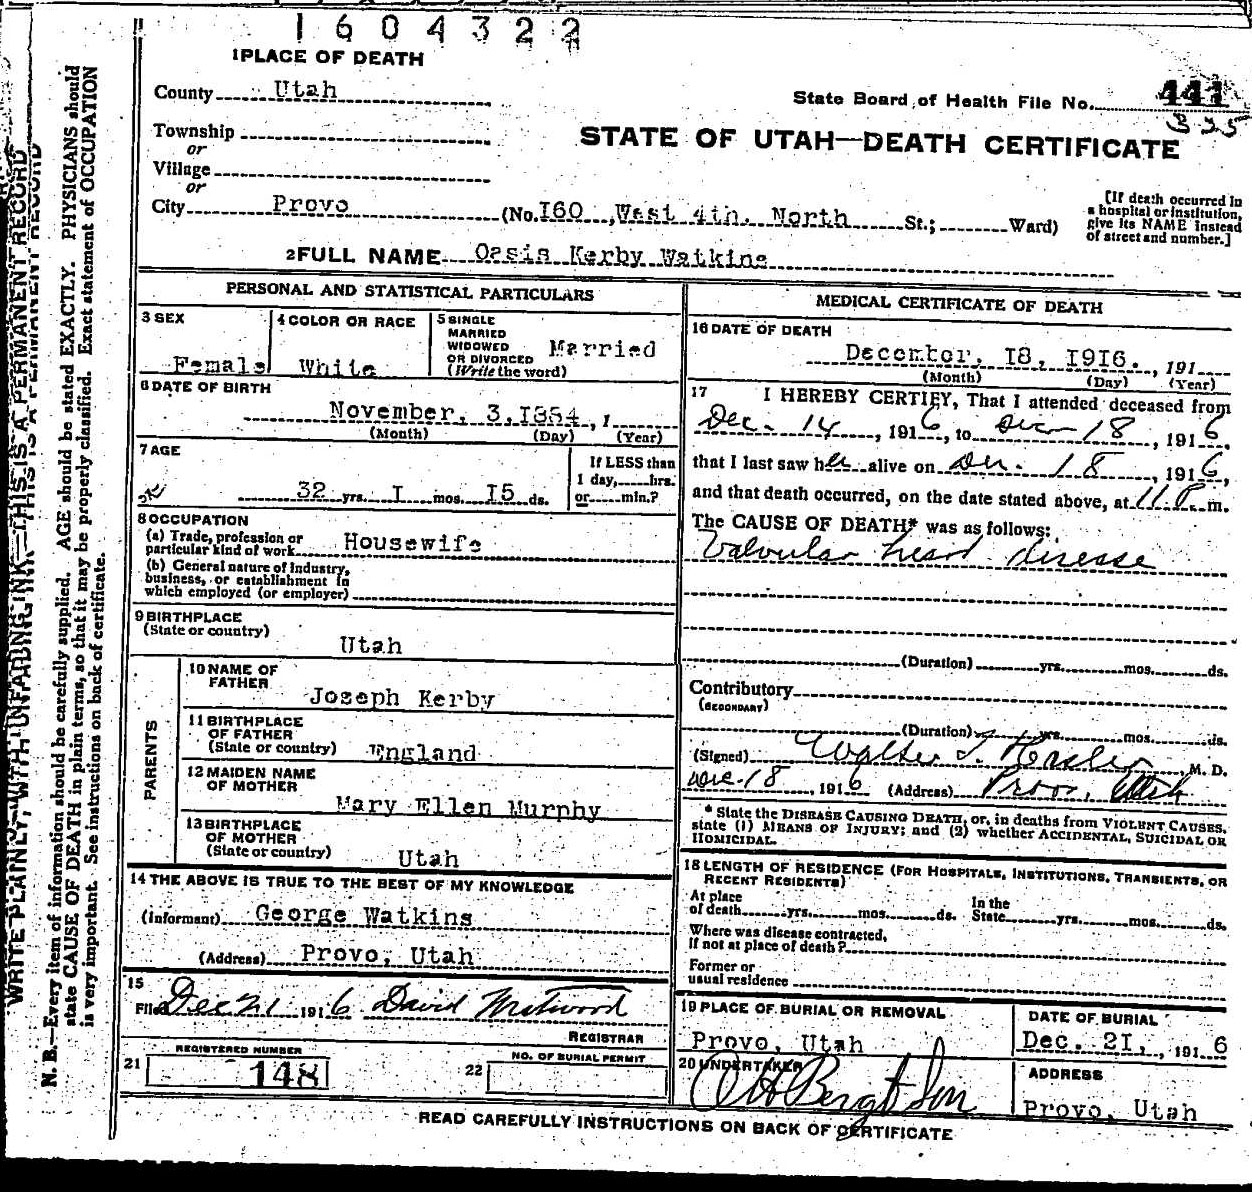 1604322
1 PLACE OF DEATH
County Utah
State Board of Health File No. 441
325
Township
or
STATE OF UTAH—DEATH CERTIFICATE
Village
or
City Provo (No. I60, West 4th. North St.; Ward)
[If death occurred in
a hospital or institution,
give its NAME instead
of street and number.]
2 FULL NAME Oasis Kerby Watkins
PERSONAL AND STATISTICAL PARTICULARS
3 SEX
Female
4 COLOR OR RACE
White
5 SINGLE
MARRIED
WIDOWED
OR DIVORCED
(Write the word)
Married
6 DATE OF BIRTH
November, 3, I884, 1
(Month) (Day) (Year)
7 AGE
32 yrs. I mos. I5 ds.
If LESS than
1 day, hrs.
or min.?
8 OCCUPATION
(a) Trade, profession or
particular kind of work Housewife
(b) General nature of Industry,
business, or establishment in
which employed (or employer)
9 BIRTHPLACE
(State or country)
Utah
PARENTS
10 NAME OF
FATHER
Joseph Kerby
11 BIRTHPLACE
OF FATHER
(State or country) England
12 MAIDEN NAME
OF MOTHER
Mary Ellen Murphy
13 BIRTHPLACE
OF MOTHER
(State or country) Utah
14 THE ABOVE IS TRUE TO THE BEST OF MY KNOWLEDGE
(Informant) George Watkins
(Address) Provo, Utah
15
Filed Dec 21 1916 David
REGISTRAR
21 REGISTERED NUMBER
148
22 NO. OF BURIAL PERMIT
MEDICAL CERTIFICATE OF DEATH
16 DATE OF DEATH
December, I8, I9I6. , 191
(Month) (Day) (Year)
17 I HEREBY CERTIFY, That I attended deceased from
Dec. 14, 1916, to Dec 18, 1916,
that I last saw her alive on Dec. 18, 1916,
and that death occurred, on the date stated above, at 11 P m.
The CAUSE OF DEATH* was as follows:
Valvular heart disease
(Duration) yrs. mos. ds.
Contributory
(SECONDARY)
(Duration) yrs. mos. ds.
(Signed) Walter T. Hasler M. D.
Dec. 18, 1916 (Address) Provo, Utah
* State the DISEASE CAUSING DEATH, or, in deaths from VIOLENT CAUSES,
state (1) MEANS OF INJURY; and (2) whether ACCIDENTAL, SUICIDAL OR
HOMICIDAL.
18 LENGTH OF RESIDENCE (FOR HOSPITALS, INSTITUTIONS, TRANSIENTS, OR
RECENT RESIDENTS)
At place
of death yrs. mos. ds.
In the
State yrs. mos. ds.
Where was disease contracted,
If not at place of death?
Former or
usual residence
19 PLACE OF BURIAL OR REMOVAL
Provo, Utah
DATE OF BURIAL
Dec. 2I, , 1916
20 UNDERTAKER
ADDRESS
Provo, Utah
READ CAREFULLY INSTRUCTIONS ON BACK OF CERTIFICATE
WRITE PLAINLY, WITH UNFADING INK—THIS IS A PERMANENT RECORD
N. B.—Every item of information should be carefully supplied. AGE should be stated EXACTLY. PHYSICIANS should
state CAUSE OF DEATH in plain terms, so that it may be properly classified. Exact statement of OCCUPATION
is very important. See instructions on back of certificate.